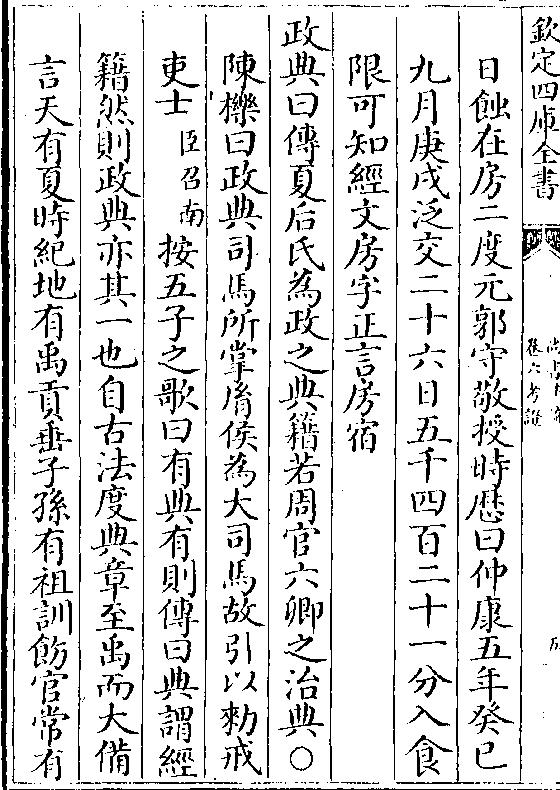 欽定四庫全書
卷六考證
日蝕在房二度元郭守敬授時厯曰仲康五年癸巳
九月庚戌泛交二十六日五千四百二十一分入食
限可知經文房字正言房宿
政典曰傳夏后氏為政之典籍若周官六卿之治典〇
陳櫟曰政典司馬所掌𦙍侯為大司馬故引以勅戒
吏士臣召南按五子之歌曰有典有則傳曰典謂經
籍然則政典亦其一也自古法度典章至禹而大備
言天有夏時紀地有禹貢垂子孫有祖訓飭官常有